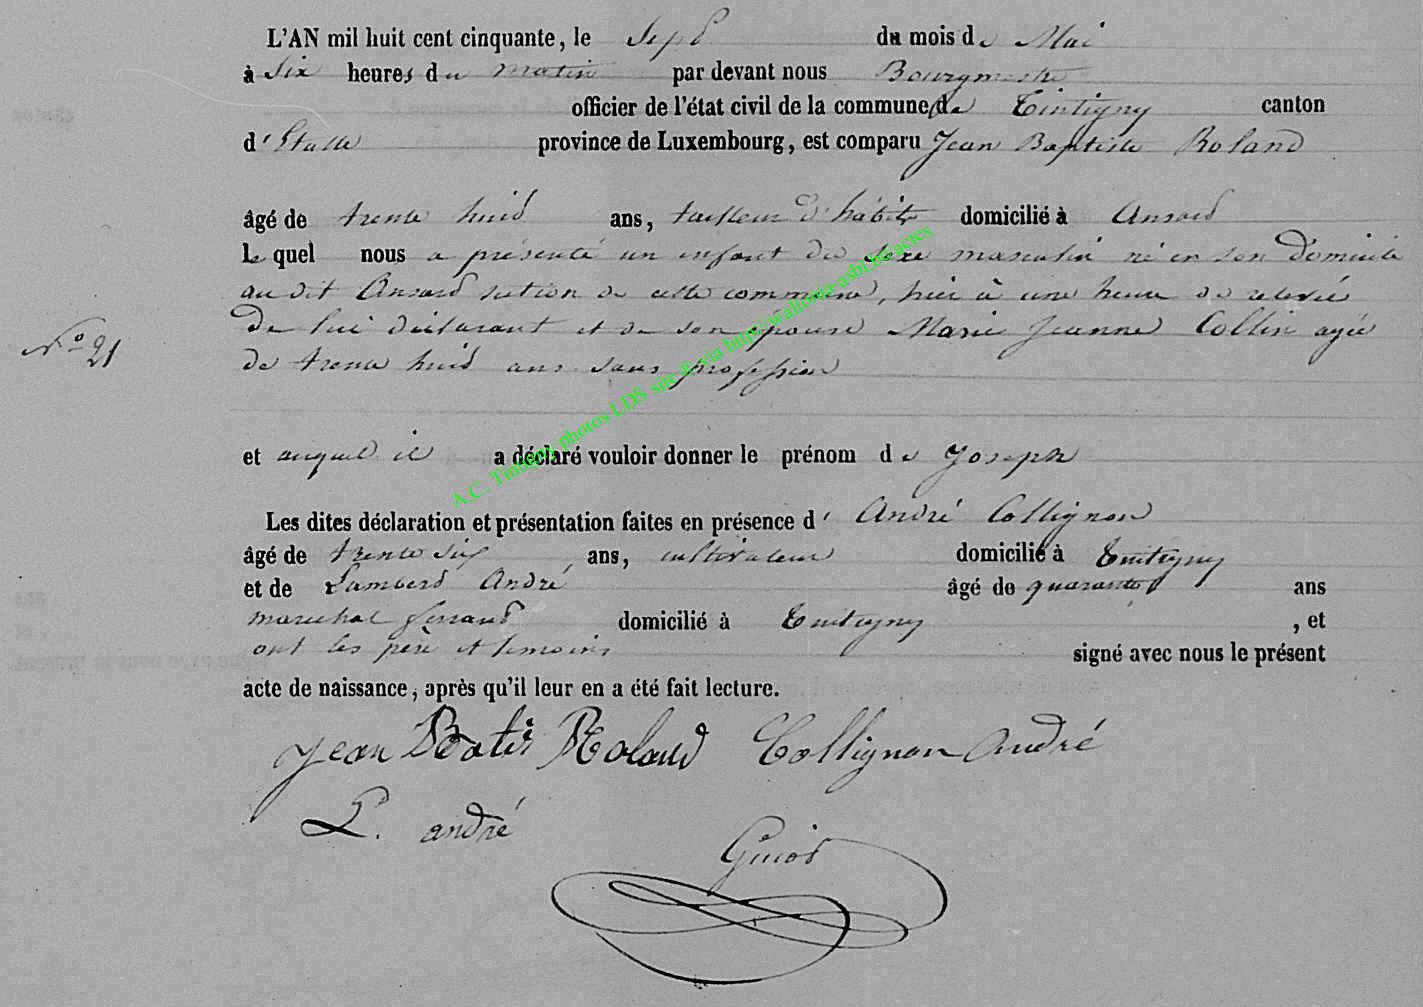 L'AN mil huit cent cinquante, le Sept du mois de Mai
à Six heures du matin par devant nous Bourgmestre
officier de l'état civil de la commune de Tintigny canton
d'Etalle province de Luxembourg, est comparu Jean Baptiste Roland
âgé de trente huit ans, tailleur d'habits domicilié à Ansart
Le quel nous a présenté un enfant du sexe masculin né en son Domicile
au dit Ansart section de cette commune, hier à une heure de relevée
de lui déclarant et de son épouse Marie Jeanne Collin agée
N° 21
de trente huit ans sans profession
et auquel il a déclaré vouloir donner le prénom de Joseph
Les dites déclaration et présentation faites en présence d' André Collignon
âgé de trente six ans, cultivateur domicilié à Tintigny
et de Lambert André âgé de quarante ans
marechal ferrant domicilié à Tintigny , et
ont les père et temoins signé avec nous le présent
acte de naissance, après qu'il leur en a été fait lecture.
Jean Batis Roland Collignon André
L. andré
Guiot
A.C. Tintigny photos LDS site @ via http://wallonia-asbl.be/actes